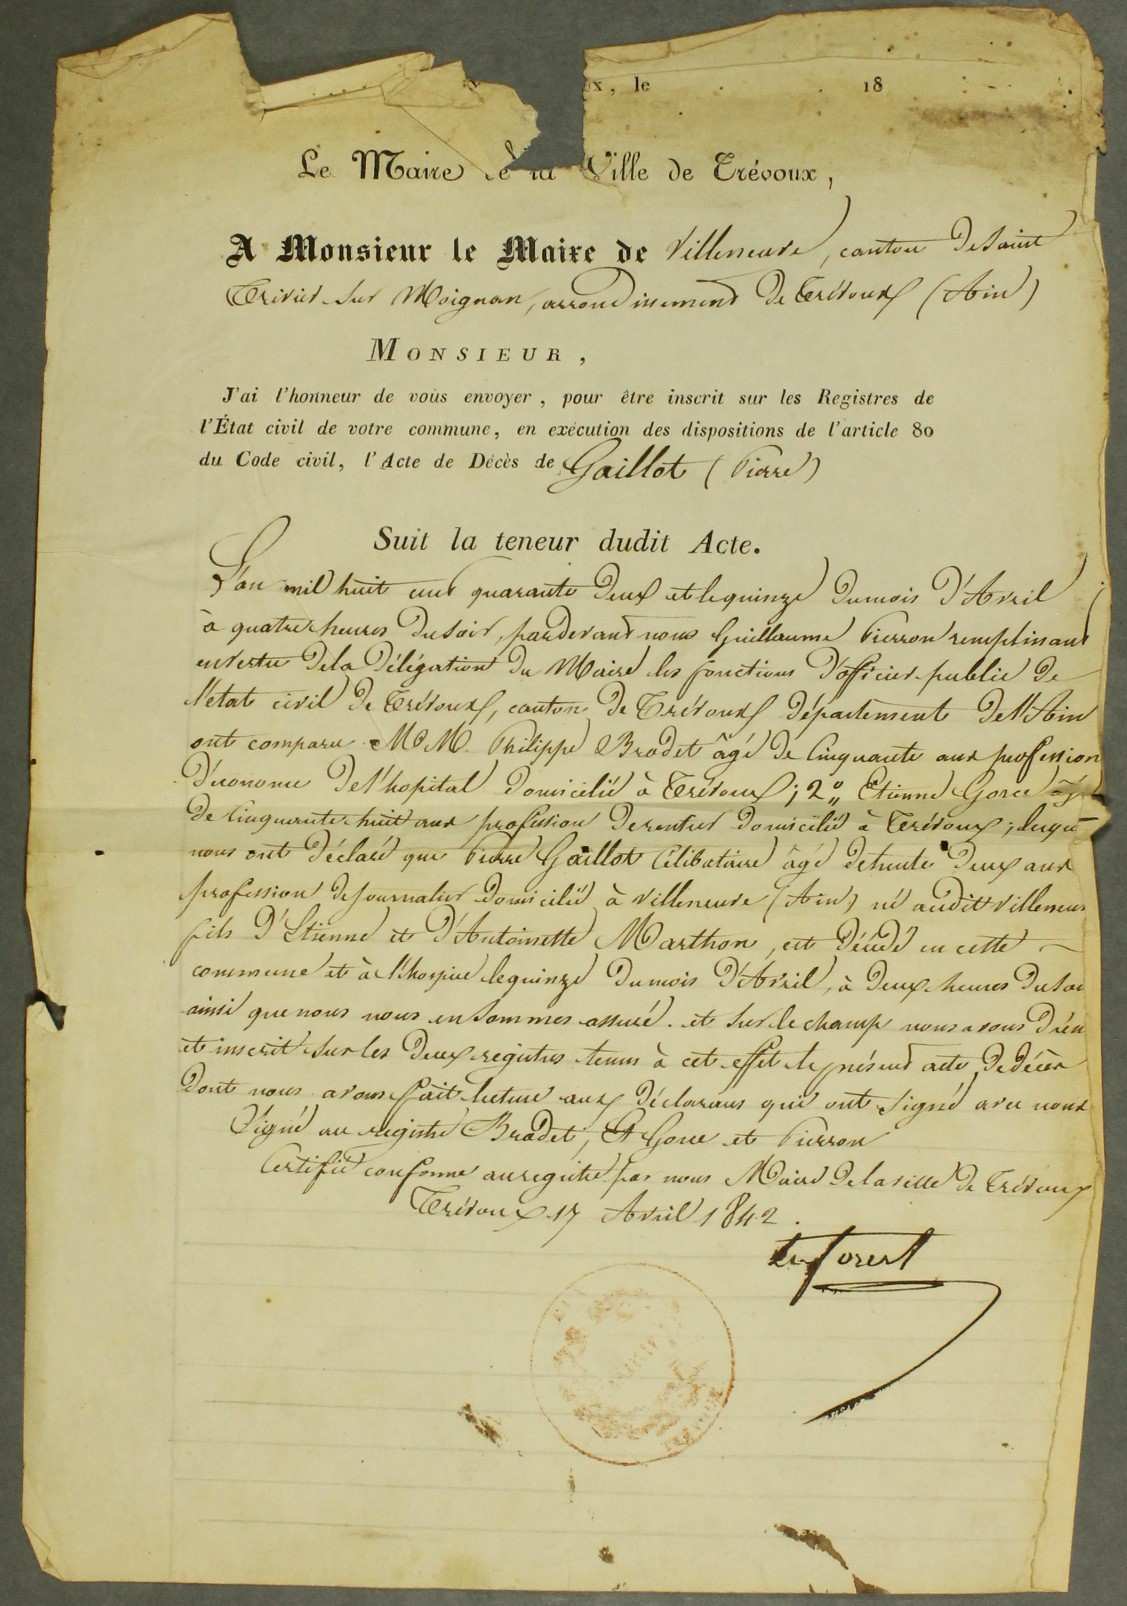 x, le 18
Le Maire de la Ville de Trévoux,
A Monsieur le Maire de Villeneuve, canton de Saint
Trivier sur Moignan, arrondissement de Trévoux (Ain)
MONSIEUR,
J'ai l'honneur de vous envoyer, pour être inscrit sur les Registres de
l'État civil de votre commune, en exécution des dispositions de l'article 80
du Code civil, l'Acte de Décès de Gaillot (Pierre)
Suit la teneur dudit Acte.
L'an mil huit cent quarante deux et le quinze du mois d'Avril
à quatre heures du soir, pardevant nous Guillaume Pierron remplissant
en vertu de la Délégation du Maire les fonctions d'officier public de
l'état civil de Trévoux, canton de Trévoux département de l'Ain
ont comparu M.M. Philippe Bradet âgé de cinquante ans profession
d'econome de l'hopital domicilié à Trévoux; 2° Etienne Gorce âgé
de cinquante huit ans profession de rentier domicilié à Trévoux; lesquels
nous ont déclaré que Pierre Gaillot célibataire âgé de trente deux ans
profession de journalier domicilié à Villeneuve (Ain) né audit Villeneuve
fils d'Etienne et d'Antoinette Marthon, est décédé en cette
commune et à l'hospice le quinze du mois d'Avril, à deux heures du soir
ainsi que nous nous en sommes assuré. et sur le champ nous avons
et inscrit sur les deux registres tenus à cet effet le présent acte de décès
dont nous avons fait lecture aux déclarans qui ont signé avec nous
Signé au registre Bradet, Et Gorce et Pierron
Certifié conforme au registre par nous Maire de la ville de Trévoux
Trévoux 17 Avril 1842.